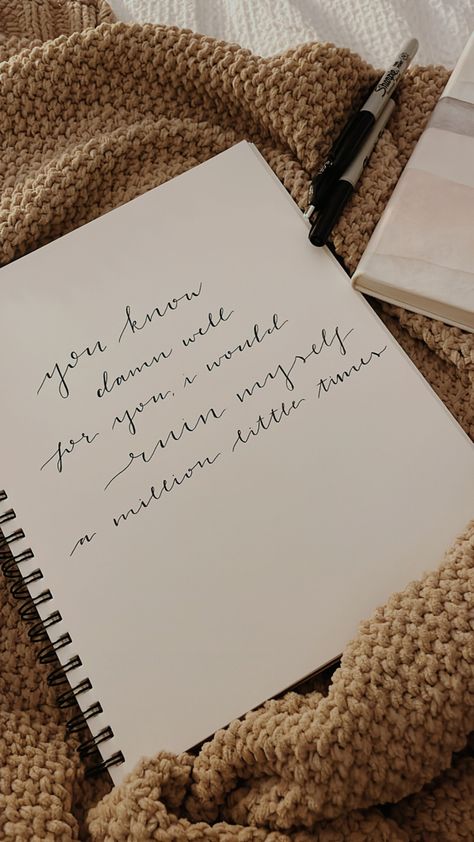 you know
damn well
for you, i would
ruin myself
a million little times
Sharpie